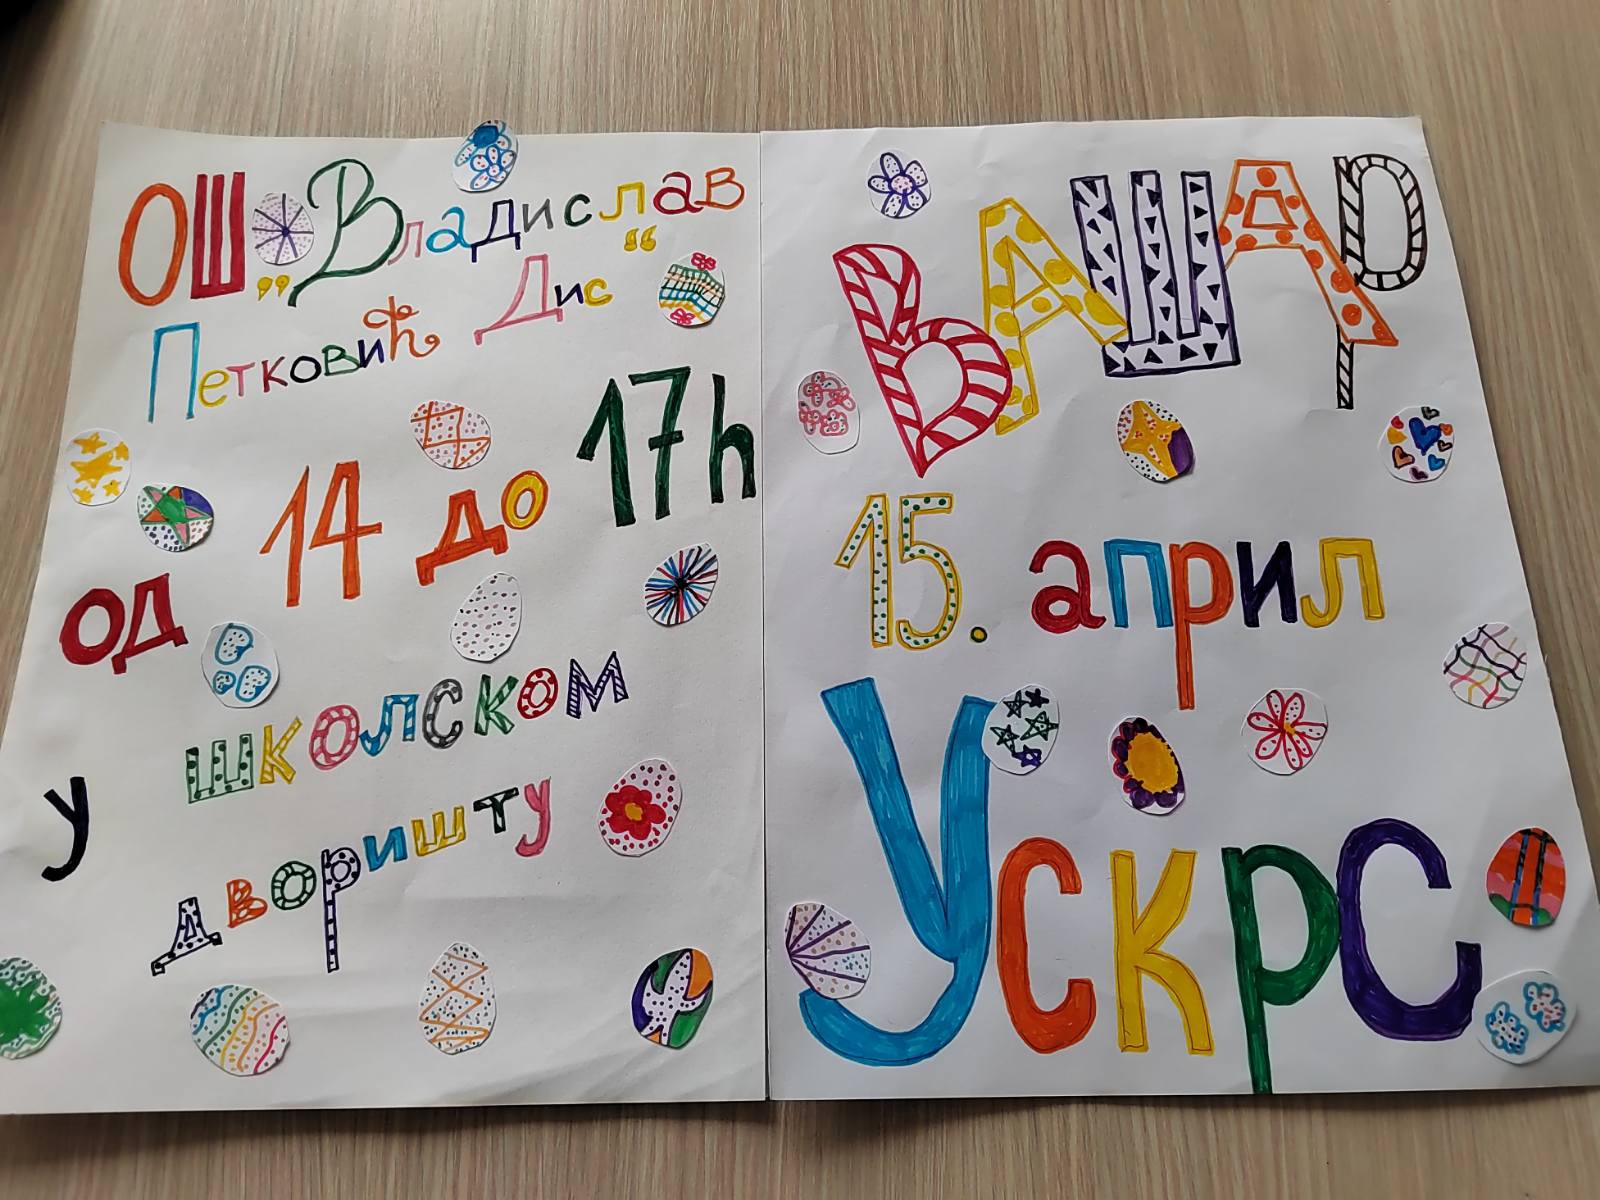 ОШ „Владислав
Петковић Дис“
од 14 до 17h
у школском
дворишту
ВАШАР
15. април
Ускрс